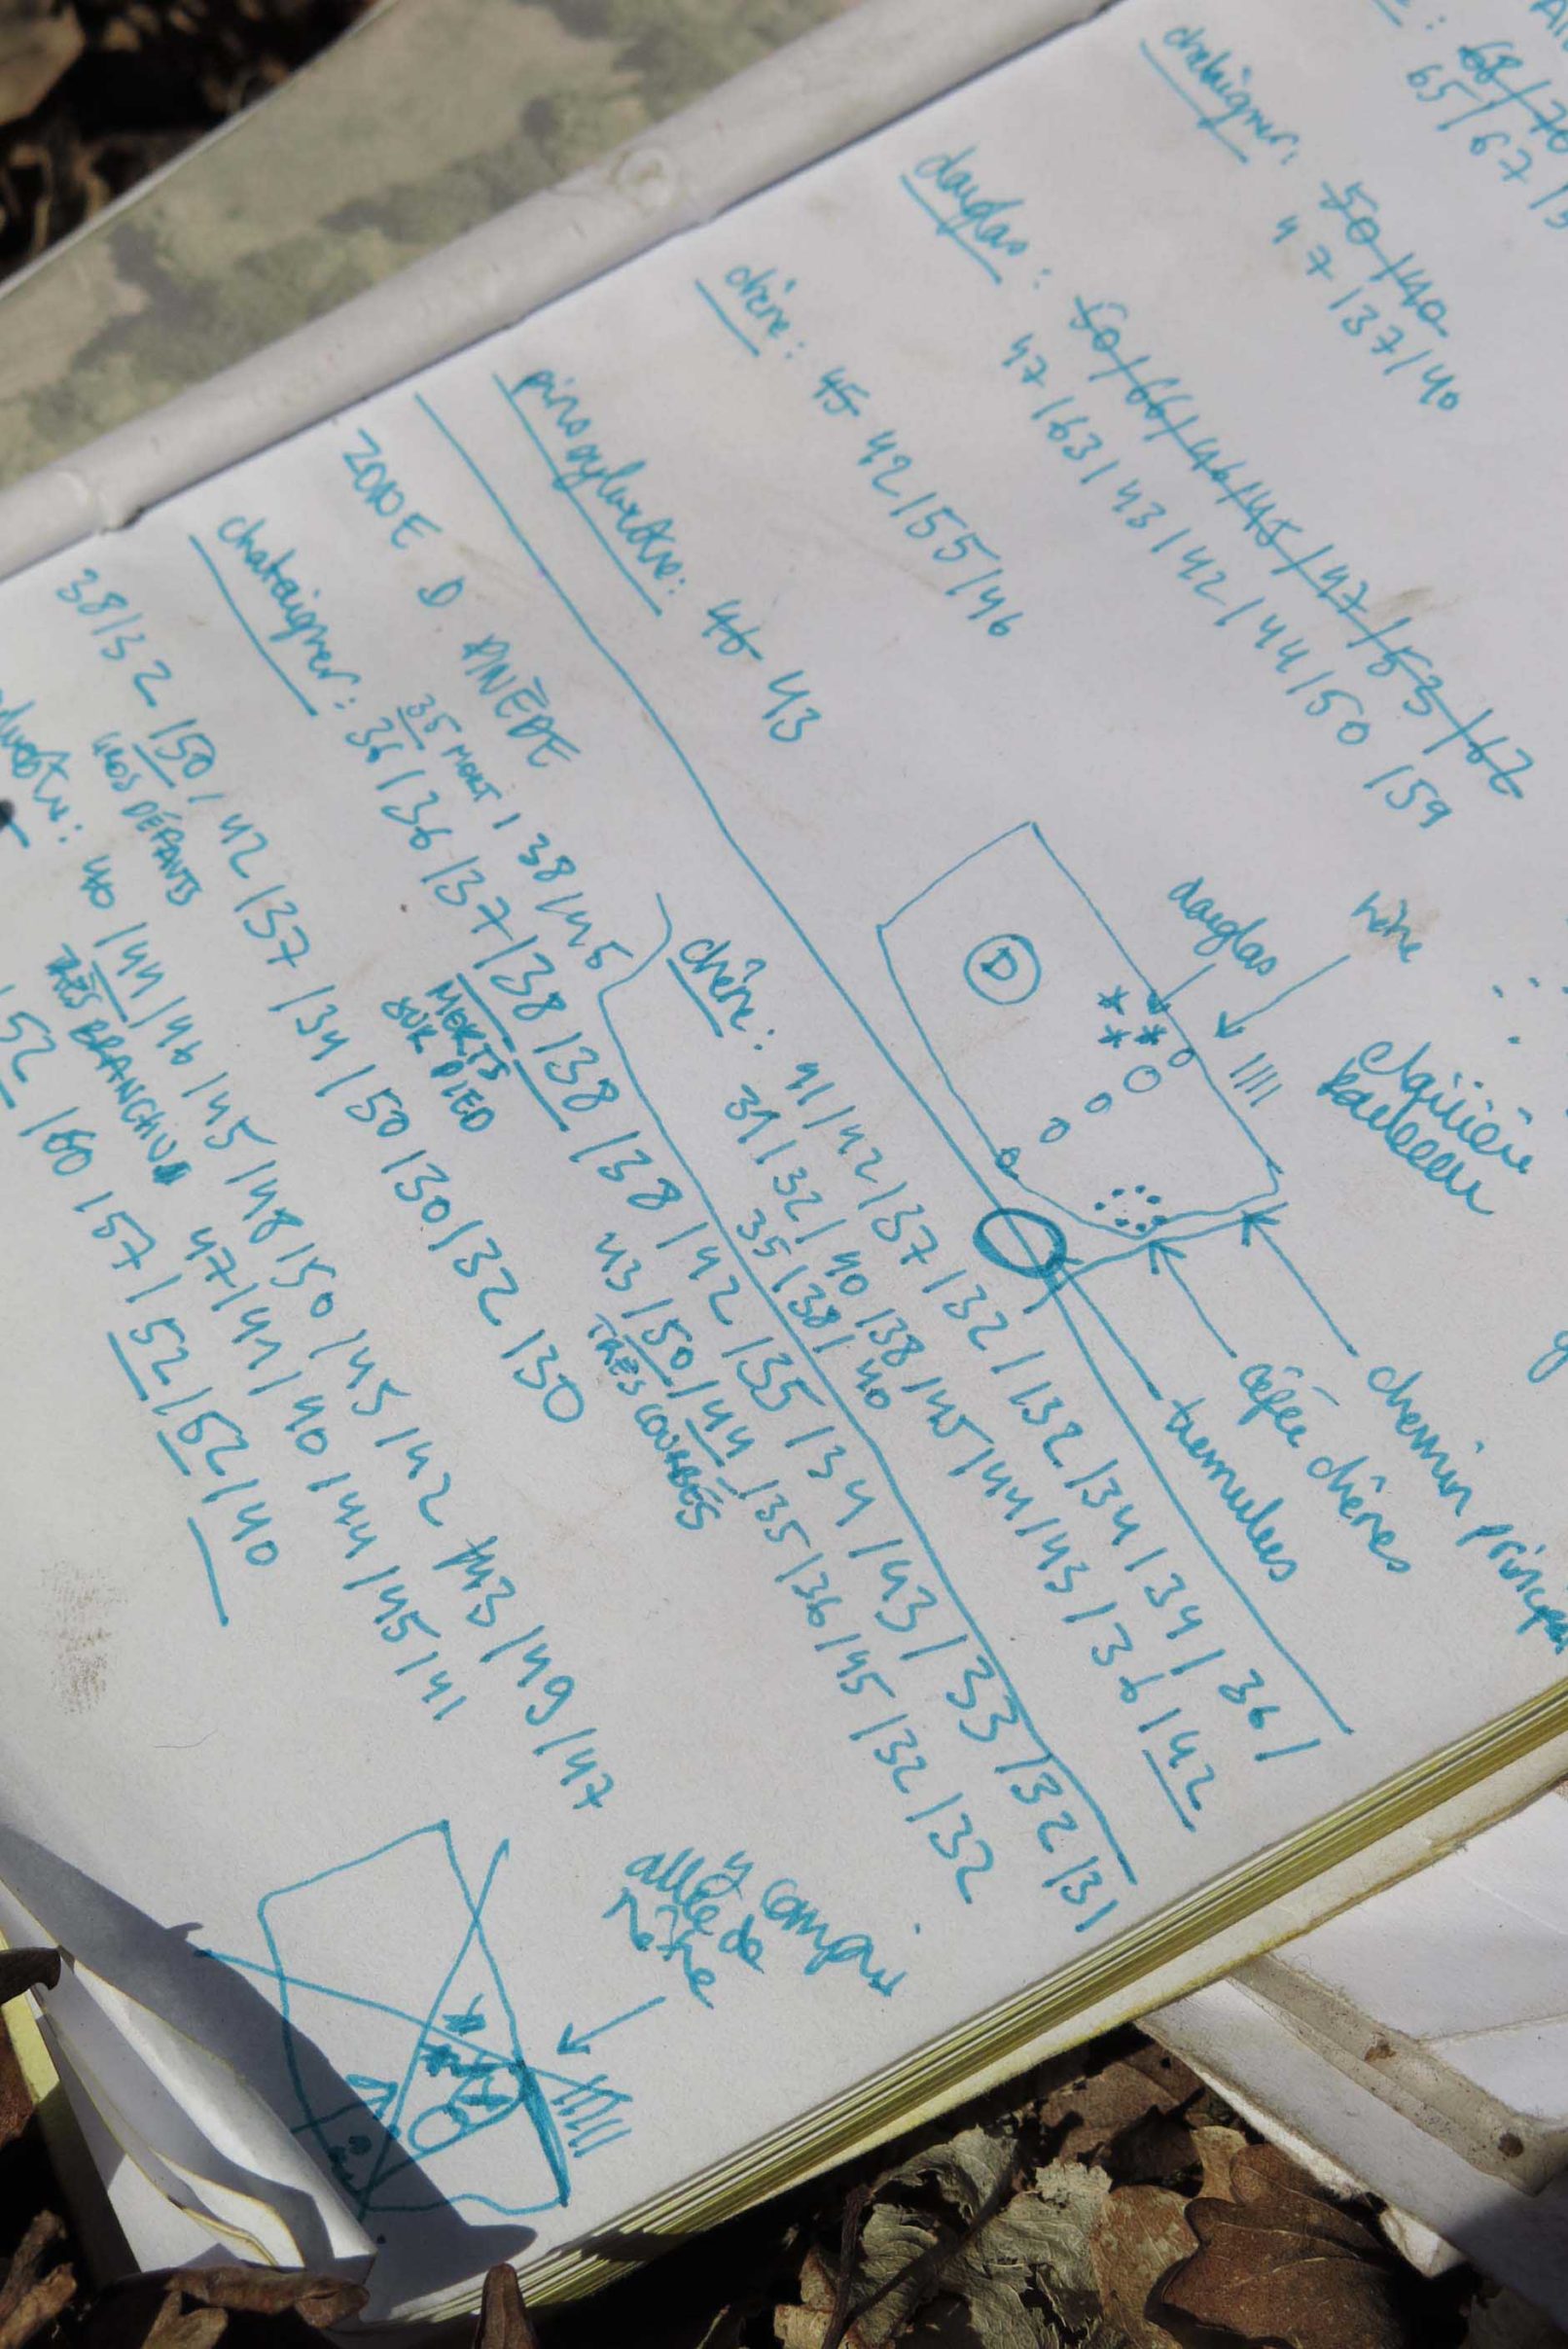 65 / 67 /
chataigner : 50 / 40
47 / 37 / 40
douglas : 50 / 66 / 46 / 45 / 47 / 53 / 62
47 / 63 / 43 / 42 / 44 / 50 / 59
chêne : 45 42 / 55 / 46
pin sylvestre : 46 43
douglas
hêtre
clairière
bouleau
D
chemin principal
cépée chênes
tremules
ZONE D PINÈDE
chataigner : 35 MORT / 38 / 45
36 / 36 / 37 / 38 / 38 / 38 / 42 / 35 / 34 / 43 / 33 / 32 / 31
MORTS
SUR PIED
43 / 50 / 44 / 35 / 36 / 45 / 32 / 32
TRÈS COURBÉS
chêne : 41 / 42 / 37 / 32 / 32 / 34 / 34 / 36 /
31 / 32 / 40 / 38 / 45 / 44 / 43 / 36 / 42
35 / 38 / 40
38 / 32 / 50 / 42 / 37 / 34 / 50 / 30 / 32 / 30
GROS DÉFAUTS
40 / 44 / 46 / 45 / 48 / 50 / 45 / 42 / 43 / 49 / 47
TRÈS BRANCHU
47 / 41 / 40 / 44 / 45 / 41
/ 52 / 60 / 57 / 52 / 52 / 40
y compris
allée de
hêtre